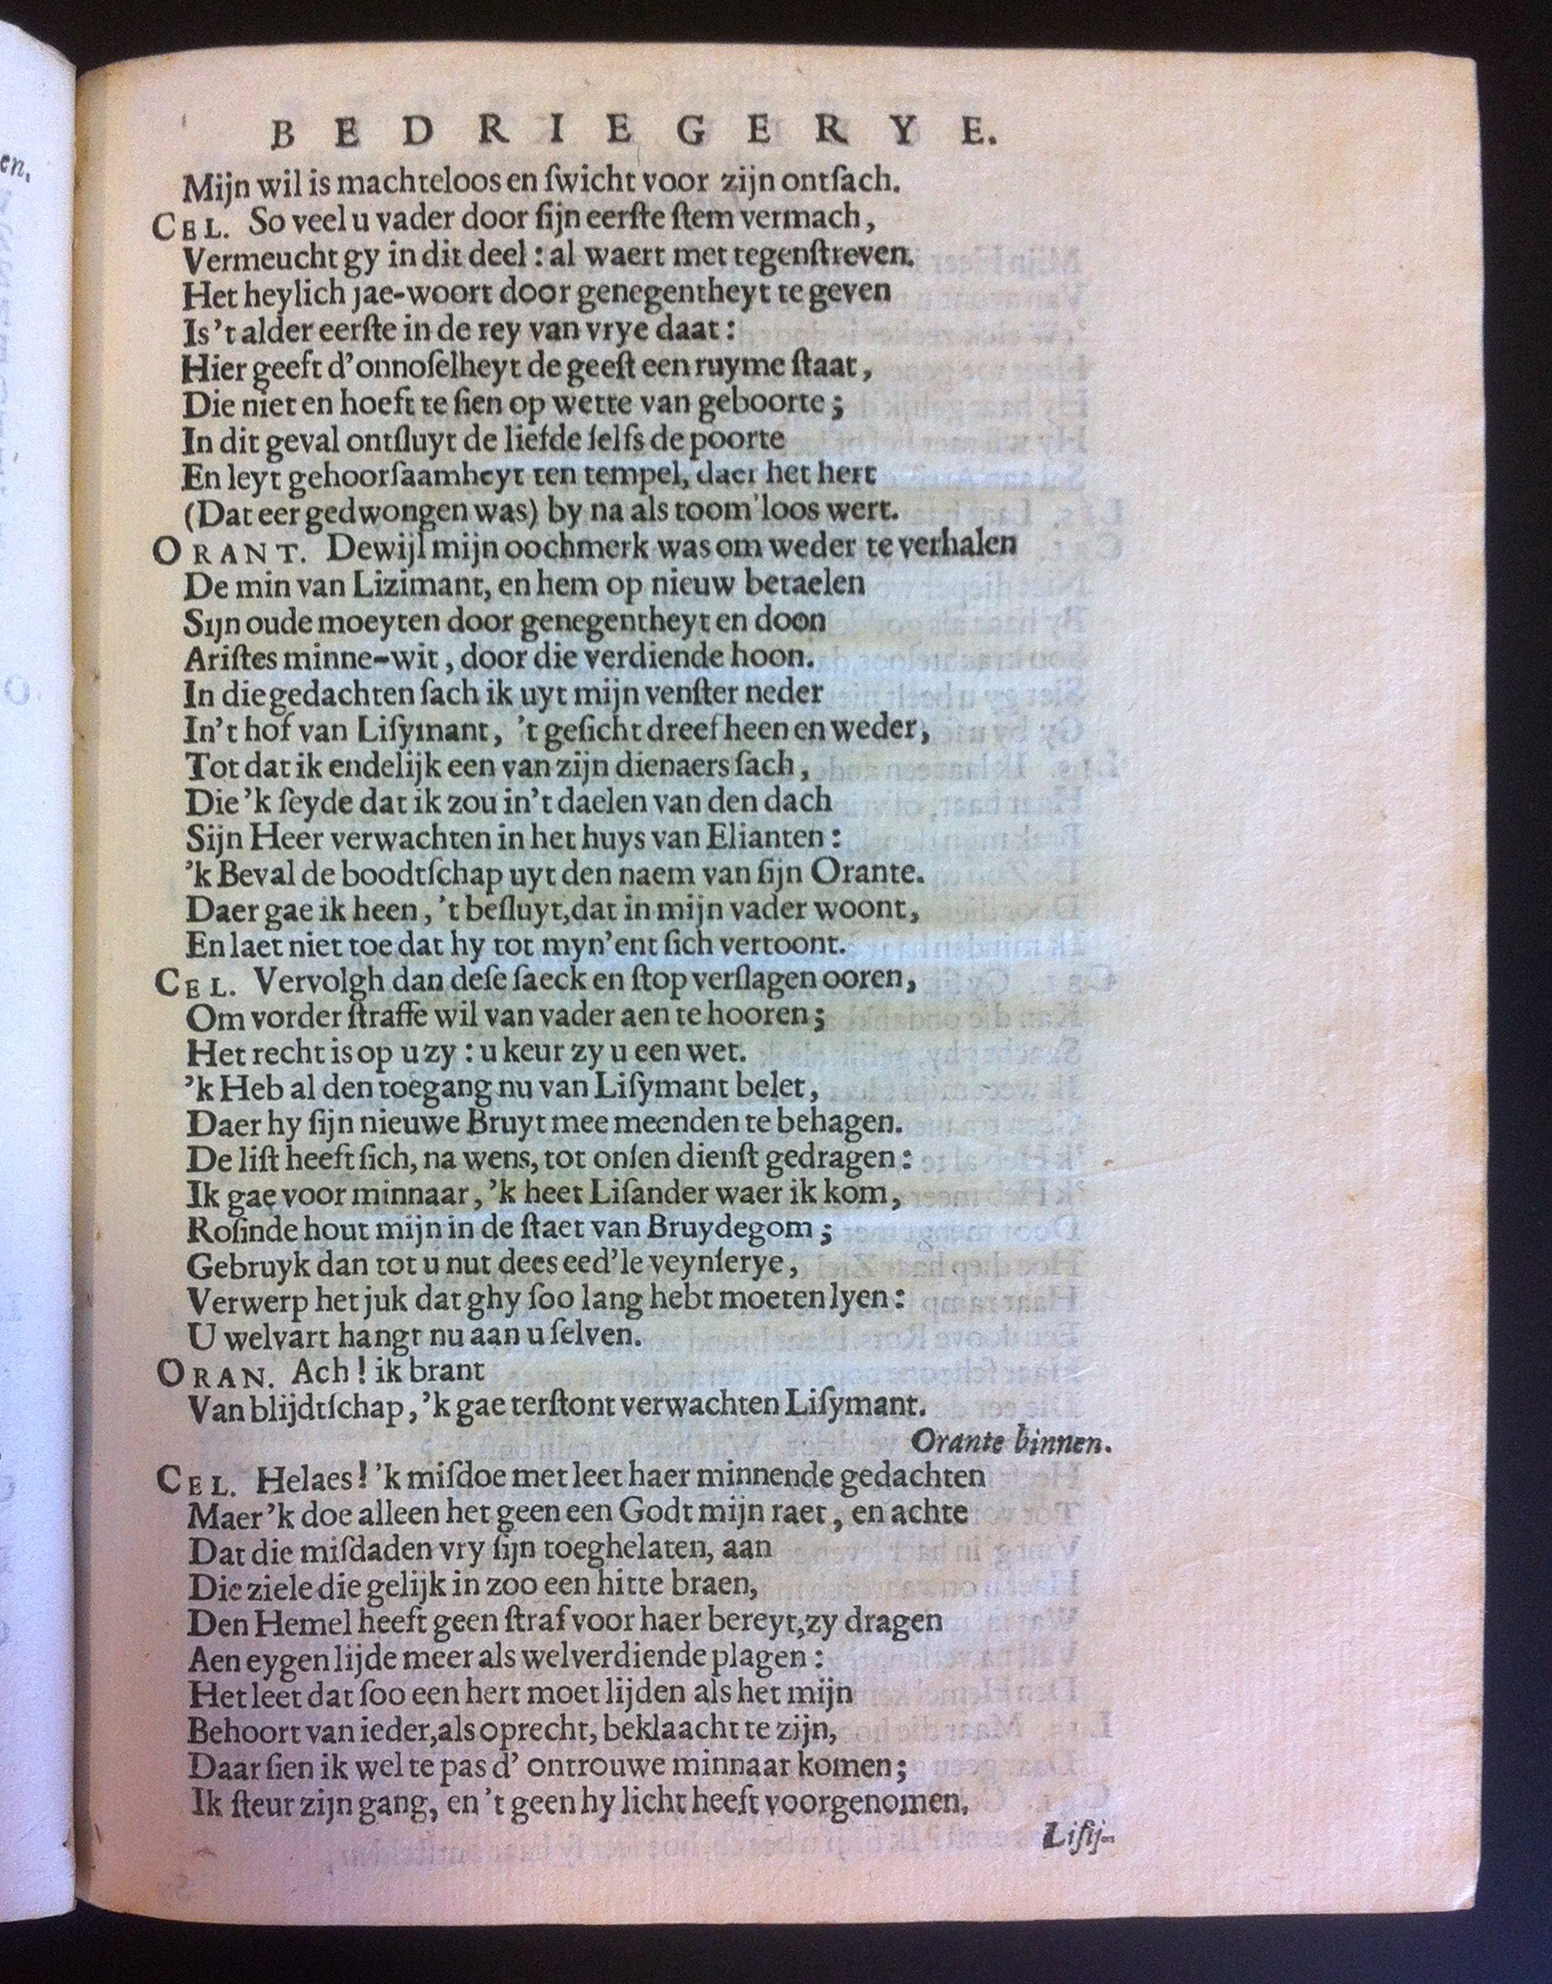 BEDRIEGERYE.
Mijn wil is machteloos en ſwicht voor zijn ontſach.
CEL. So veel u vader door ſijn eerſte ſtem vermach,
Vermeucht gy in dit deel : al waert met tegenſtreven.
Het heylich jae-woort door genegentheyt te geven
Is 't alder eerſte in de rey van vrye daat :
Hier geeft d'onnoſelheyt de geeſt een ruyme ſtaat,
Die niet en hoeft te ſien op wette van geboorte ;
In dit geval ontſluyt de liefde ſelfs de poorte
En leyt gehoorſaamheyt ten tempel, daer het hert
(Dat eer gedwongen was) by na als toom'loos wert.
ORANT. Dewijl mijn oochmerk was om weder te verhalen
De min van Lizimant, en hem op nieuw betaelen
Sijn oude moeyten door genegentheyt en doon
Ariſtes minne-wit, door die verdiende hoon.
In die gedachten ſach ik uyt mijn venſter neder
In't hof van Liſymant, 't geſicht dreef heen en weder,
Tot dat ik endelijk een van zijn dienaers ſach,
Die 'k ſeyde dat ik zou in't daelen van den dach
Sijn Heer verwachten in het huys van Elianten :
'k Beval de boodtſchap uyt den naem van ſijn Orante.
Daer gae ik heen, 't beſluyt, dat in mijn vader woont,
En laet niet toe dat hy tot myn'ent ſich vertoont.
CEL. Vervolgh dan deſe ſaeck en ſtop verſlagen ooren,
Om vorder ſtraffe wil van vader aen te hooren ;
Het recht is op u zy : u keur zy u een wet.
'k Heb al den toegang nu van Liſymant belet,
Daer hy ſijn nieuwe Bruyt mee meenden te behagen.
De liſt heeft ſich, na wens, tot onſen dienſt gedragen :
Ik gae voor minnaar, 'k heet Liſander waer ik kom,
Roſinde hout mijn in de ſtaet van Bruydegom ;
Gebruyk dan tot u nut dees eed'le veynſerye,
Verwerp het juk dat ghy ſoo lang hebt moeten lyen :
U welvart hangt nu aan u ſelven.
ORAN. Ach ! ik brant
Van blijdtſchap, 'k gae terſtont verwachten Liſymant.
Orante binnen.
CEL. Helaes ! 'k miſdoe met leet haer minnende gedachten
Maer 'k doe alleen het geen een Godt mijn raet, en achte
Dat die miſdaden vry ſijn toeghelaten, aan
Die ziele die gelijk in zoo een hitte braen,
Den Hemel heeft geen ſtraf voor haer bereyt, zy dragen
Aen eygen lijde meer als welverdiende plagen :
Het leet dat ſoo een hert moet lijden als het mijn
Behoort van ieder, als oprecht, beklaacht te zijn,
Daar ſien ik wel te pas d' ontrouwe minnaar komen ;
Ik ſteur zijn gang, en 't geen hy licht heeft voorgenomen.
Liſij-